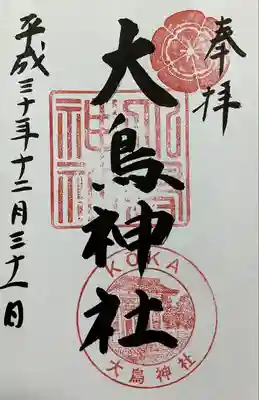 奉拝
大鳥神社
平成三十年十二月三十一日
大鳥神社
KOKA
大鳥神社